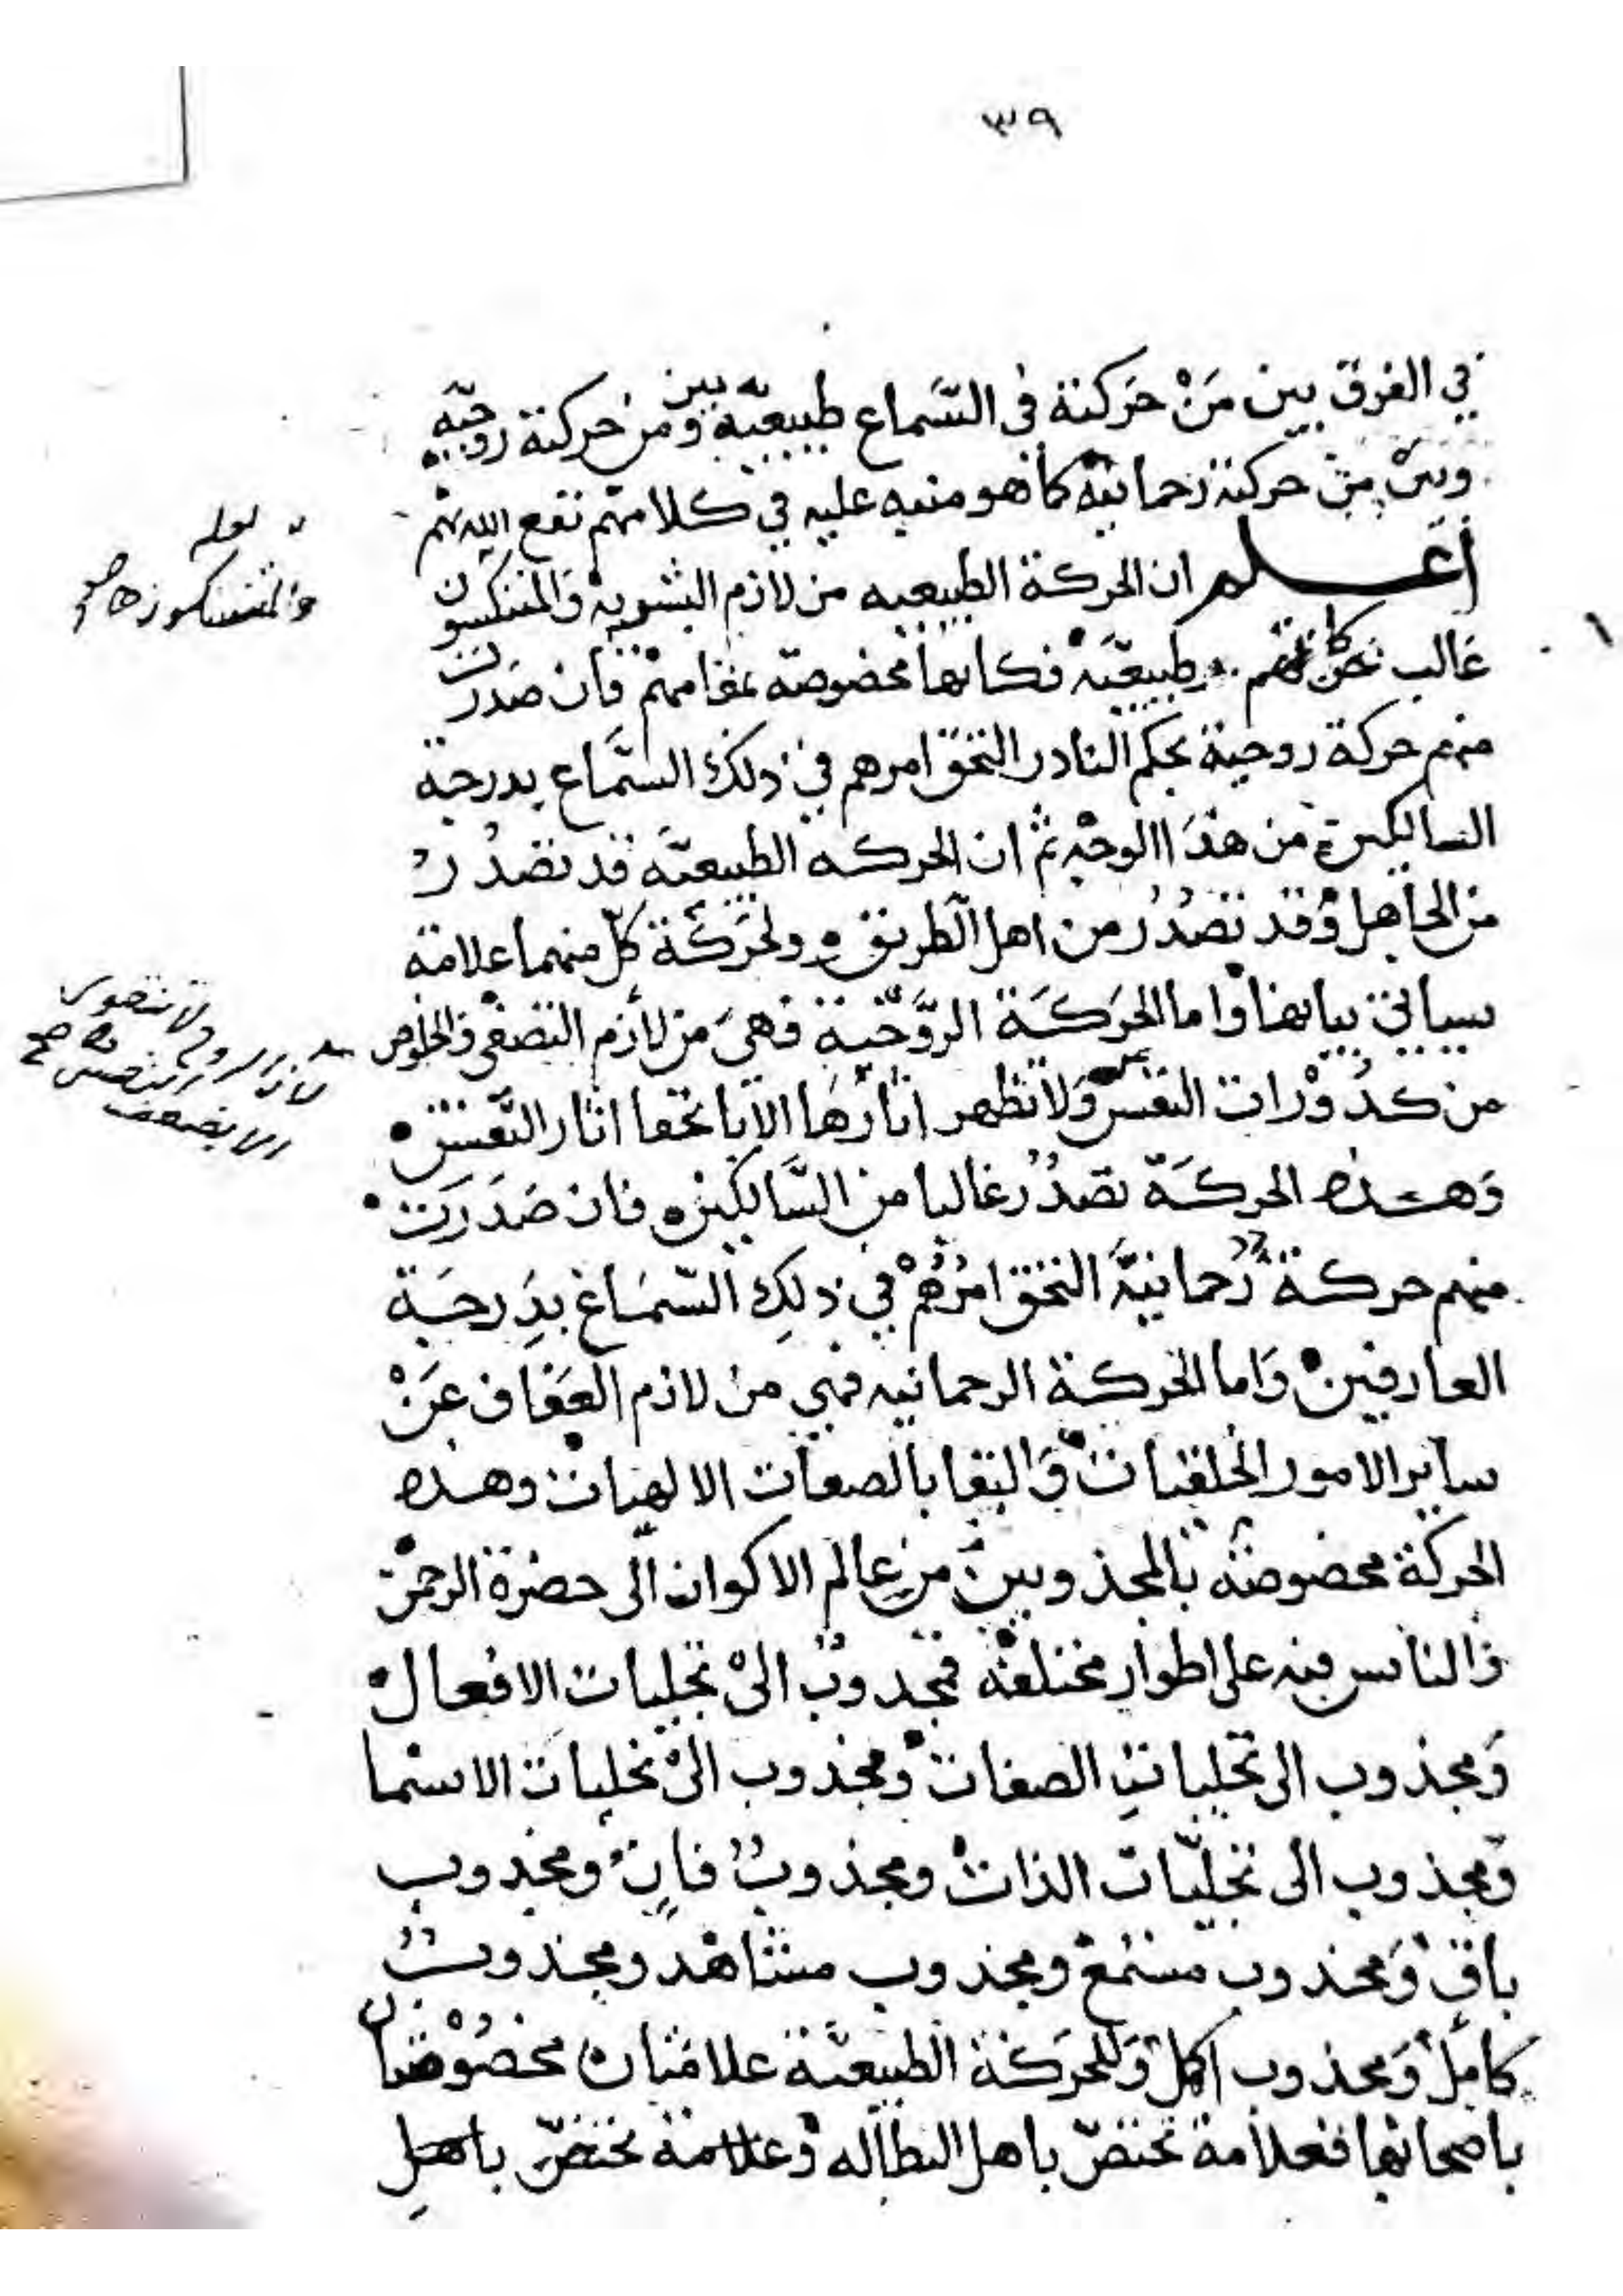 ٣٩
في الفرق بين مَنْ حَركته في السَّماع طبيعيّه وبين من حركته روحيّه
وبين من حركته رحمانيّه كما هو منبه عليه في كلامهم نفع الله بهم
أعلم ان الحركة الطبيعيه من لازم البشويه والمتنكسون
غالب طبيعيّه فكانها مخصوصة بمقامهم فان صَدرت
منهم حركة روحية بحكم النادر التحق امرهم في ذلك السَّماع بدرجة
السالكين من هذا الوجه ثم ان الحركه الطبيعيّه قد تصدُر
من الجاهل وقد تصْدُر من اهل الطريق ولحركة كل منهما علامة
سياتي بيانها واما الحَركَة الرَّوحْية فهيَ من لازم التصفي والخلوص
من كدُوْرات النفس ولا تظهر اثارها الا باختفا اثار النَّفسْ
وَهذه الحركَة تصدُر غالبا من السَّالكين فان صَدَرَتْ
منهم حركة رَحمانيَّة التحق امرُهُمْ في ذلِك السَّمَاع بدَرجَة
العارفينْ وَاما الحركة الرحمانيه فهي من لازم العَفاف عَنْ
ساير الامور الخلقيات وَالبقا بالصفات الالهيات وهذه
الحركة مخصوصَه بالمجذوبين من عالم الاكوان الى حضرة الرحمن
وَالناس فيه على اطوار مختلفه فمجذوبٌ الىْ تجليات الافعال
وَمجذوب الى تجليات الصفات ومجذوب الىْ تجليات الاسْما
وَمجذوب الى تجليّات الذات ومجذوبٌ فانٍ ومجذوب
باقٍ وَمجذوب مستمعْ ومجذوب مشاهْد ومجذوبٌ
كاملْ وَمجذوب اكمل وَللحركة الطبيعيَّة علامتان مخصُوْصتان
باصحابها فعلامة تختصّ باهل البطاله وعلامة تختصّ باهلِ
لعله
والمتنسكون صح